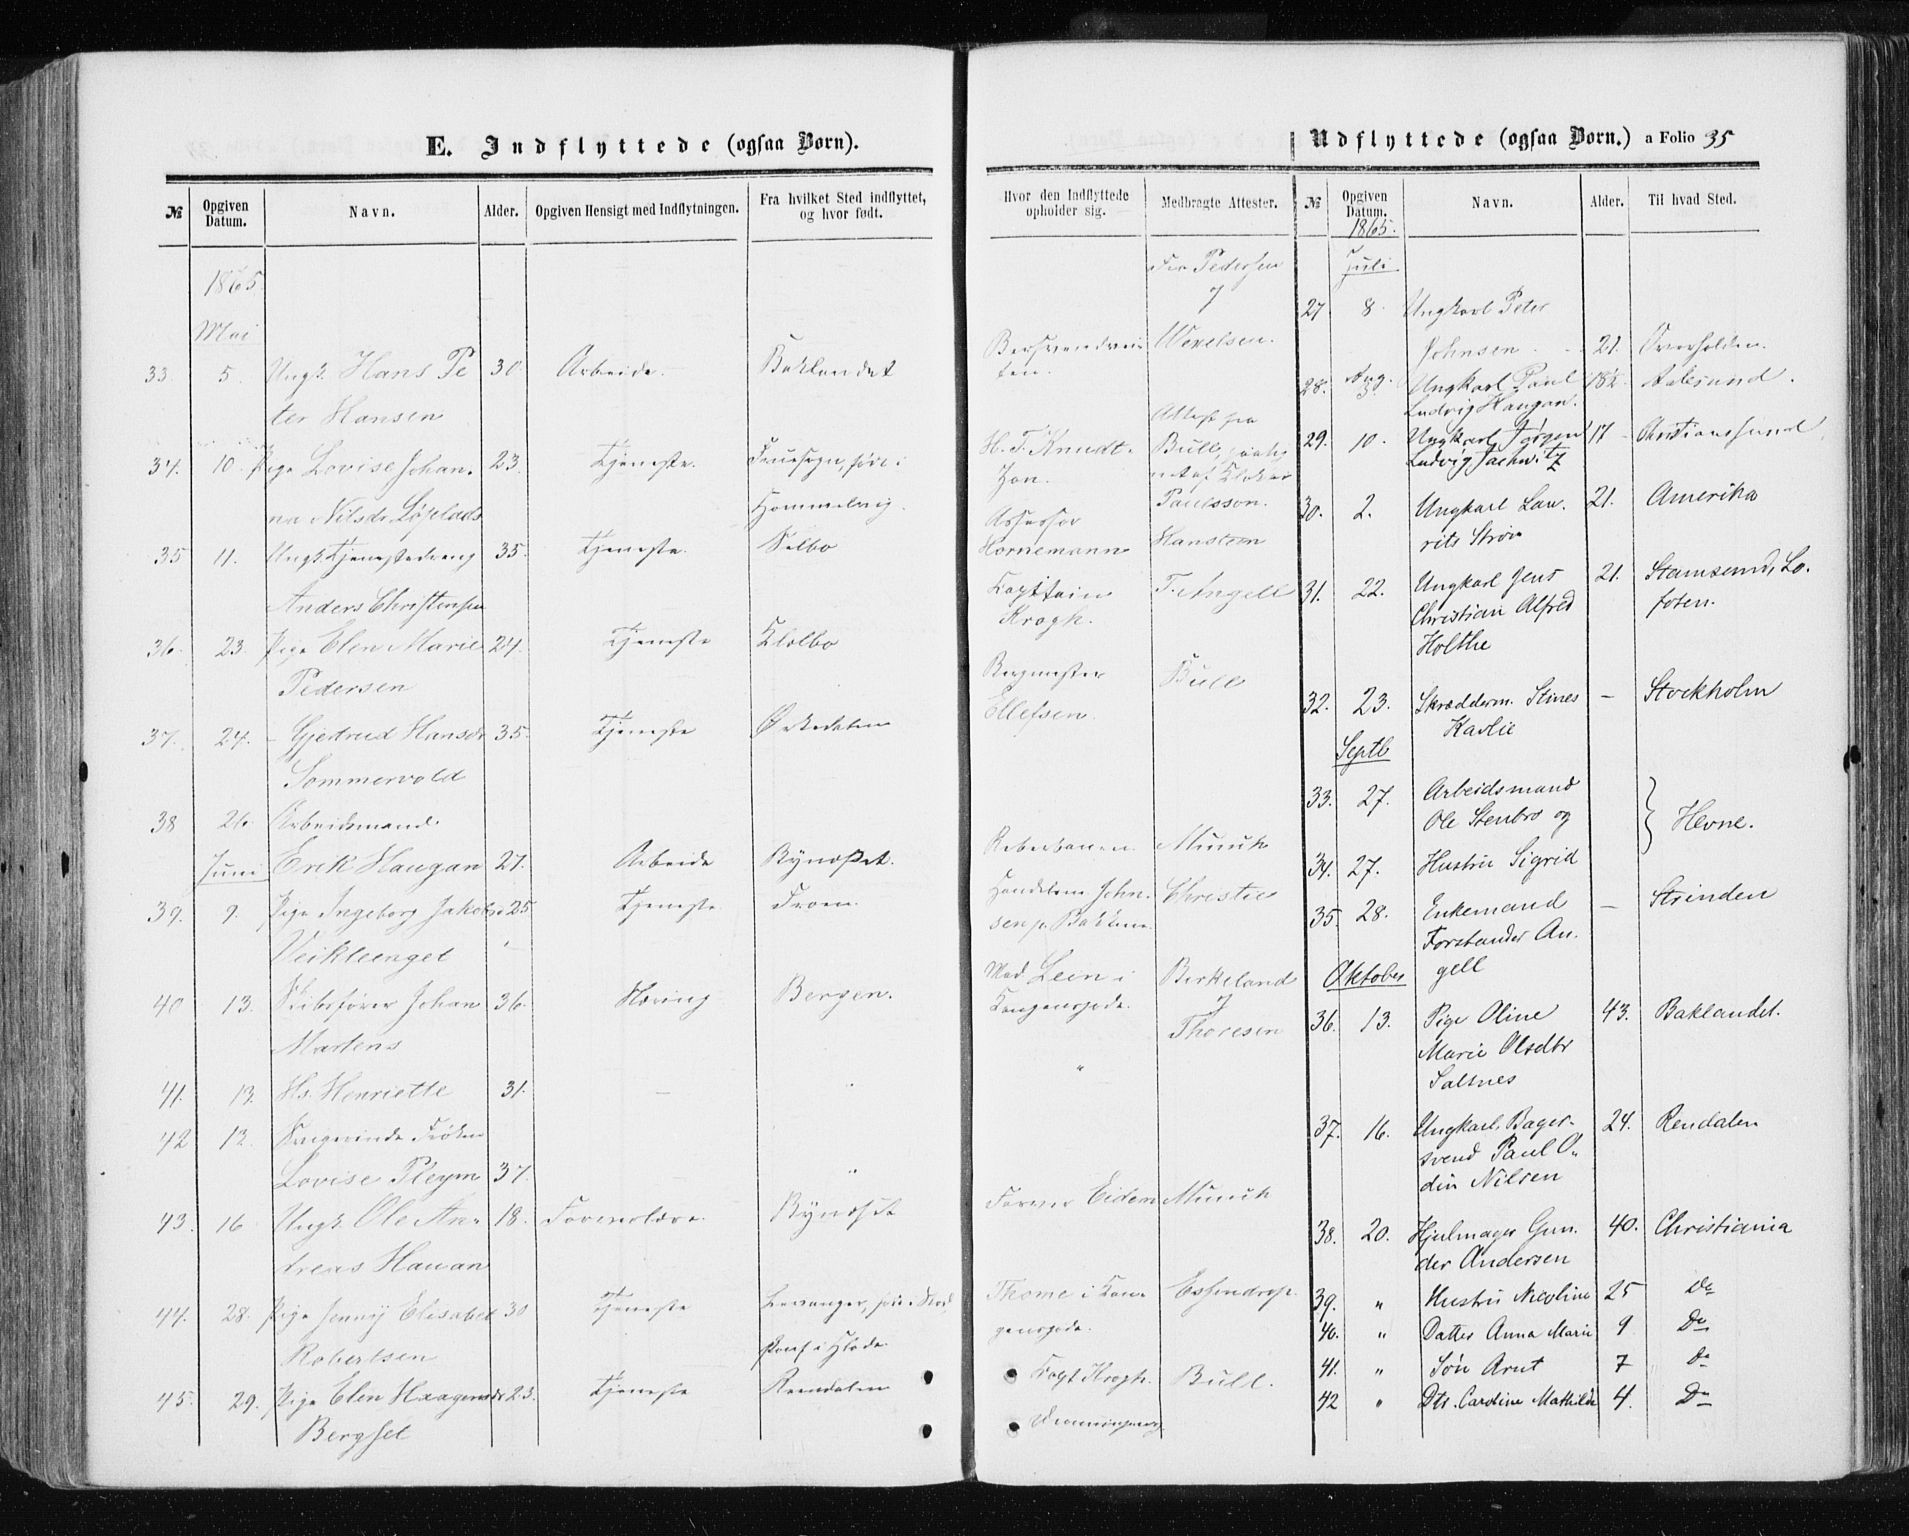 E. Indflyttede (ogsaa Børn).
№ Opgiven Datum. Navn. Alder. Opgiven Hensigt med Indflytningen. Fra hvilket Sted indflyttet, og hvor født.
1865
Mai
33. 5. Ungk. Hans Pe 30. Arbeide. Baklandet
ter Hansen
34. 10. Pige Lovise Johan. 23. Tjeneste. Fruesogn, født i
na Nilsdr. Hommelvig.
35 11. Ungk. Tjenestedreng 35. Tjeneste. Selbo
Anders Christensen
36. 23. Pige Elen Marie 24. Tjeneste Klæbo
Pedersen
37. 24. – Gjertrud Hansdr 35. Tjeneste Ørkedalen
Sommervold
38 26. Arbeidsmand.
Juni Erik Haugan 27. Arbeide Bynæsset.
39. 9. Pige Ingeborg Jakobs 25 Tjeneste
Veikleenget
40 13. Skibsfører Johan 36. Næring Bergen.
Martens
41. 13. Hs. Henriette 31. – "
42 12. Frøken
Lovise Pleym 37. "
43. 16 Ungk. Ole An- 18. Farverlære. Bynæset
dreas Hauan
44. 28. Pige Jenny Elisabet 30 Tjeneste Levanger, født i
Robertsen
45. 29. Pige Elen Haagensdr 23. Tjeneste Rendalen
Bergset
Udflyttede (ogsaa Børn.) a Folio 35
Hvor den Indflyttede opholder sig. Medbragte Attester. № Opgiven Datum. Navn. Alder. Til hvad Sted.
1865.
Pedersen Juli
27 8. Ungkarl Peter
Wexelsen. Johnsen 21. Overhalden.
28. Aug. 3. Ungkarl Paul 18½. Aalesund.
Ludvig Haugan.
Attest fra
H. T. Knudt- Bull, 29. 10. Ungkarl Jørgen 17 Christianssund
zon. Ludvig
Paulsson. 30. 2. Ungkarl Lau- 21. Amerika
Assessor
Hornemann Hansteen rits Strøm
Kaptain T. Angell 31. 22. Ungkarl Jens 21. Stamsund, Lo-
Krogh. Christian Alfred foten.
Holthe
Bergmester Bull
Ellefsen. 32. 23. Skrædderm. Stines – Stockholm
Kavlie
Septb
33. 27. Arbeidsmand
Ole Stenbro og Hevne.
Reberbanen Munch
34. 27. Hustru Sigrid
Handelsm. John- Christie
sen p. Bakken 35. 28. Enkemand – Strinden
Forstander An-
Mad. Lein i Birkeland Oktober gell
Kongensgade. &
Thoresen 36. 13. Pige Oline 43. Baklandet.
" Marie Olsdtr
Salsnes
37. 16. Ungkarl, Bager- 24. Rendalen
svend Paul O-
din Nilsen
Farver Eidem Munch
38. 20. Hjulmager Gun- 40. Christiania
der Andersen
Thome i Kon- Essendrop.
gensgade. 39. " Hustru Nicoline 25 Do
40. " Datter Anna Marie 9 Do
Fogt Krogh. Bull. 41. " Søn Arnt 7 Do
42 " Dtr. Caroline Mathilde 4. Do